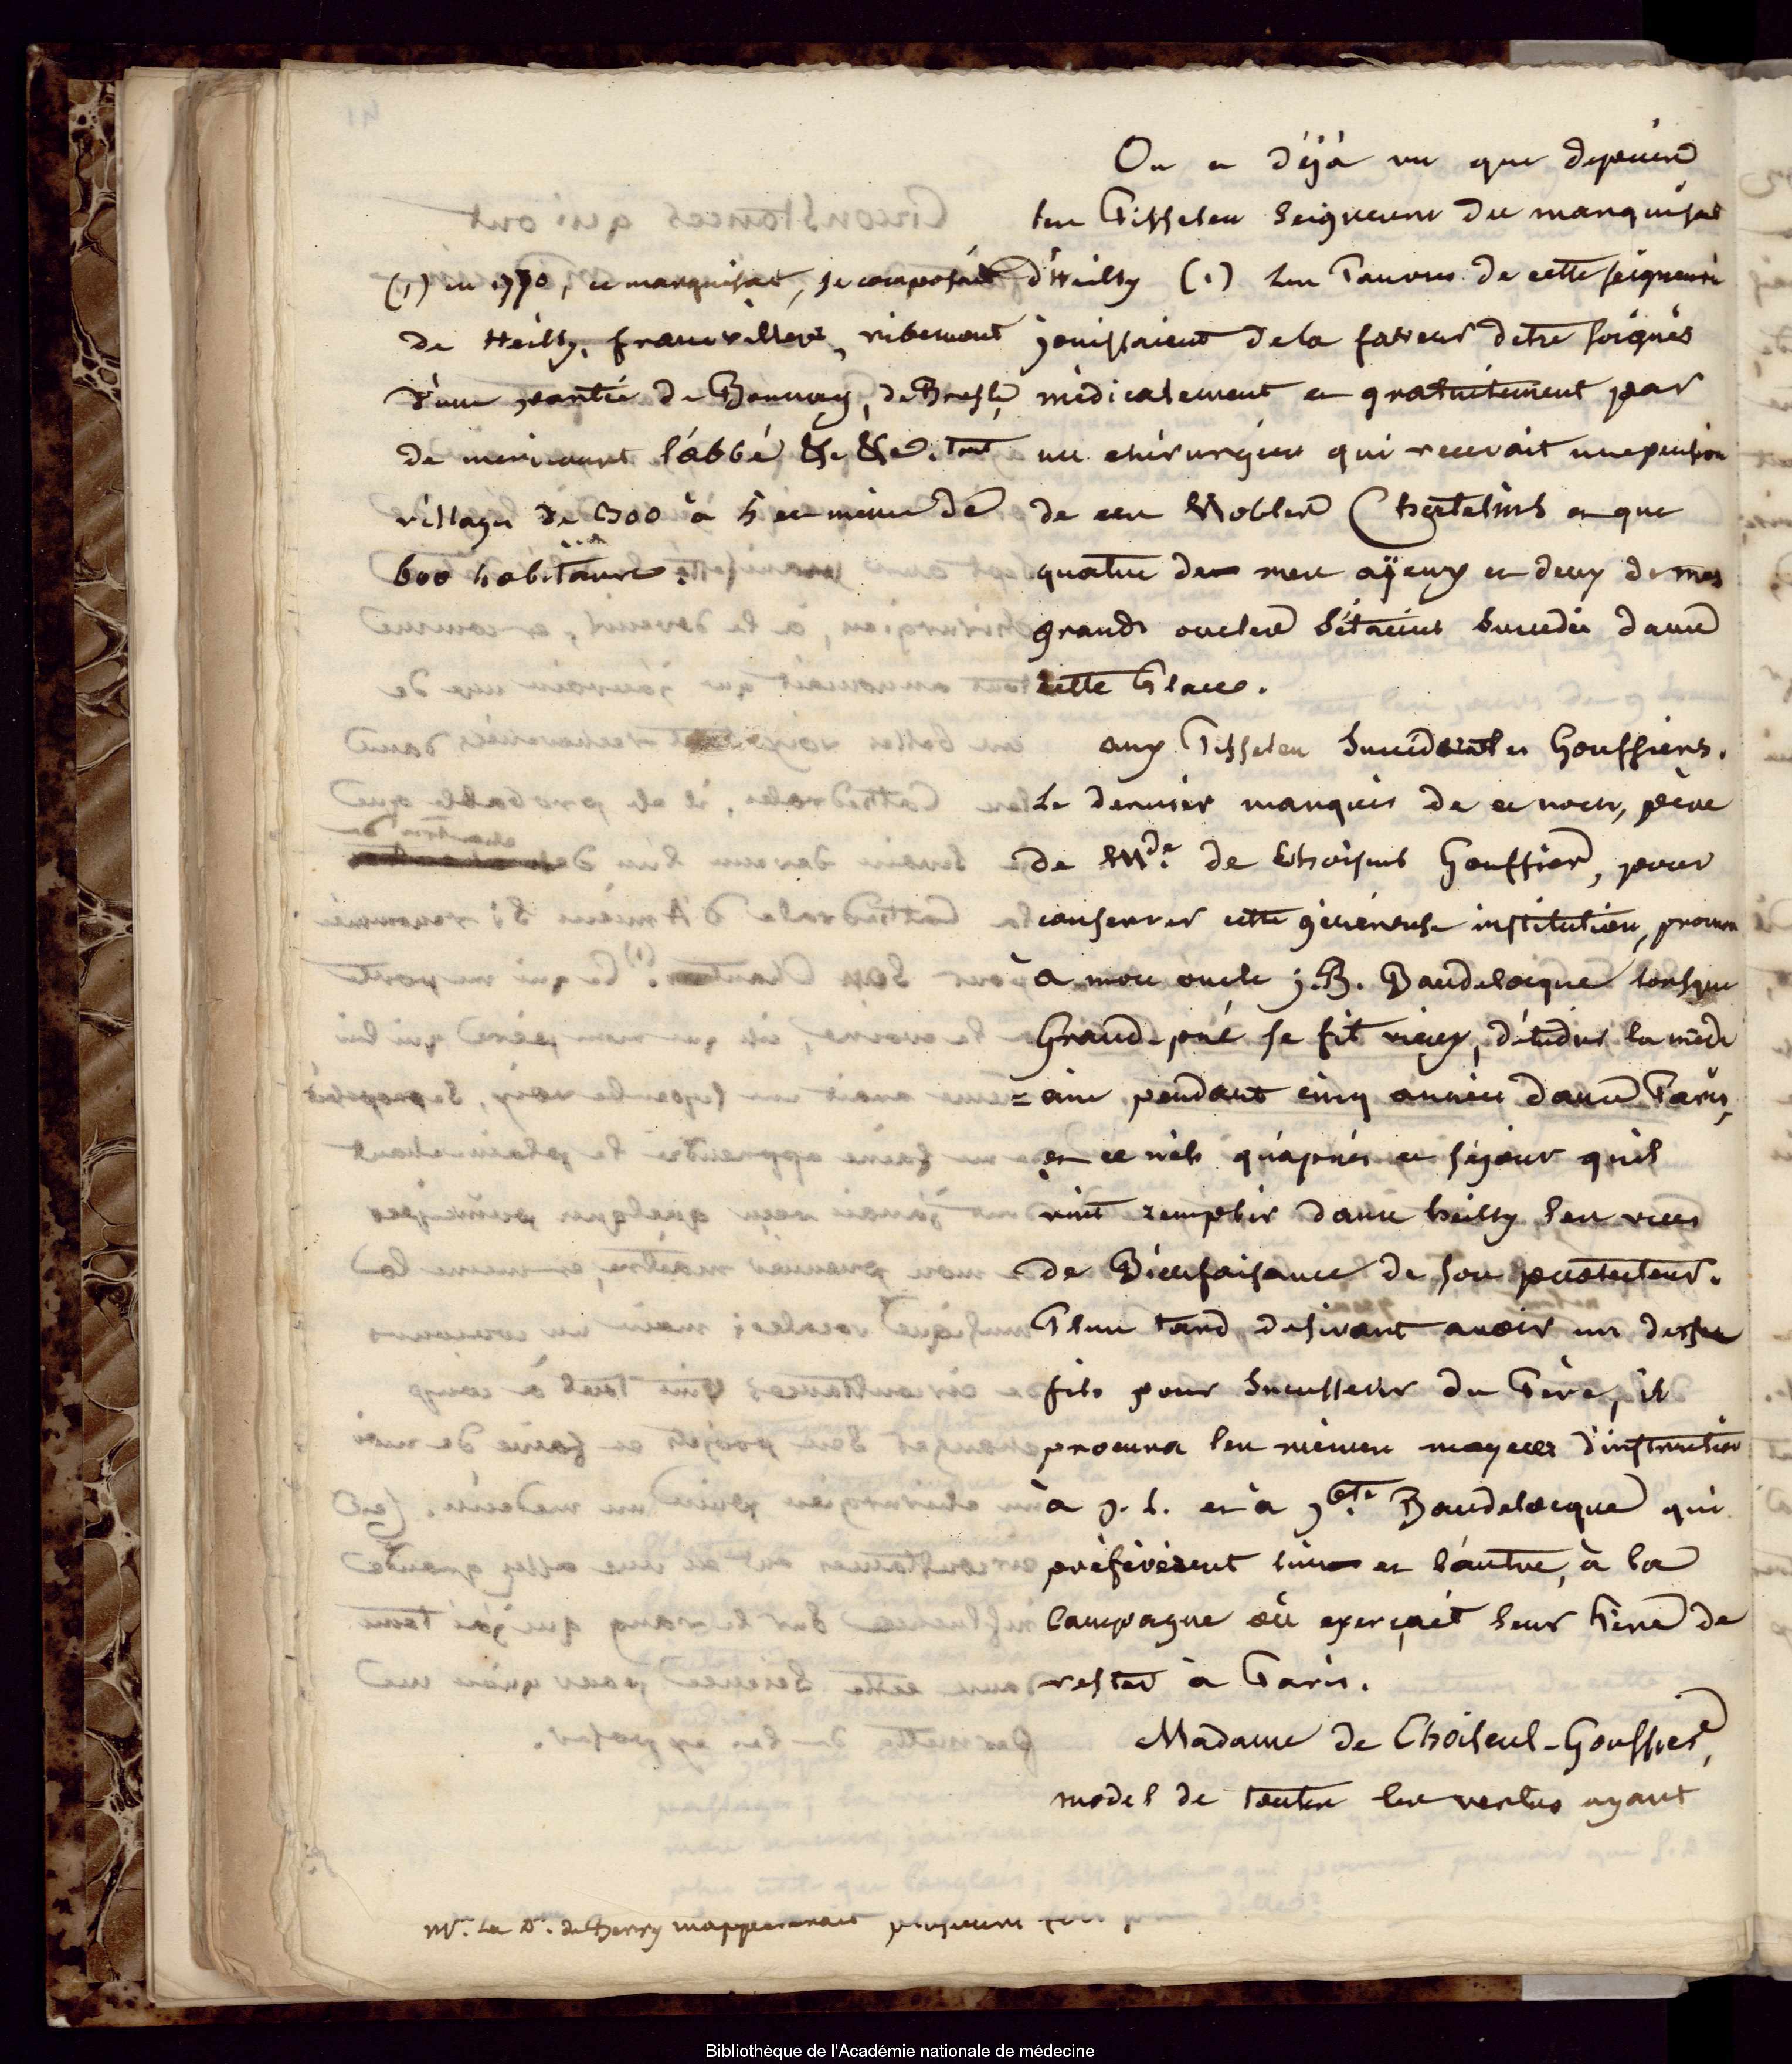 On a déjà vu que depuis
les Tisseleu seigneurs du marquisat
d'Heilly (1) les pauvres de cette seigneurie
jouissaient de la faveur detre soignés
médicalement et gratuitement par
un chirurgien qui recevait une pension
de ces Nobles Chatelins et que
quatre de mes ayeux et deux de mes
grands oncles s'étaient succédés dans
cette place.
aux Tisseleu succédèrent les Gouffiers.
le dernier marquis de ce nom, père
de Mde. de Choiseul Gouffier, pour
conserver cette généreuse institution, procura
à mon oncle j. B. Baudelocque lorsque
Grand-père se fit vieux, d'étudier la méde
=cine pendant cinq années dans Paris,
et ce n'est qu'après ce séjour qu'il
vint remplir dans heilly les vues
de Bienfaisance de son protecteur.
Plus tard desirant avoir un des
fils pour successeur du Père, il
procura les mêmes moyens d'instruction
à j. L. et à Baudelocque qui
préférèrent l'un et l'autre, à la
campagne où exerçait leur Père de
rester à Paris.
Madame de Choiseul-Gouffier,
model de toutes les vertus ayant
(1) en 1770, ce marquisat, se composait
de Heilly, franvillers, ribemont
d'une partie de Bonnay, de Bresle,
de mericourt l'abbé &c &c. tout
villages de 300 à 5 et même de
600 habitans.
de Berry plusieurs fois
Bibliothèque de l'Académie nationale de médecine